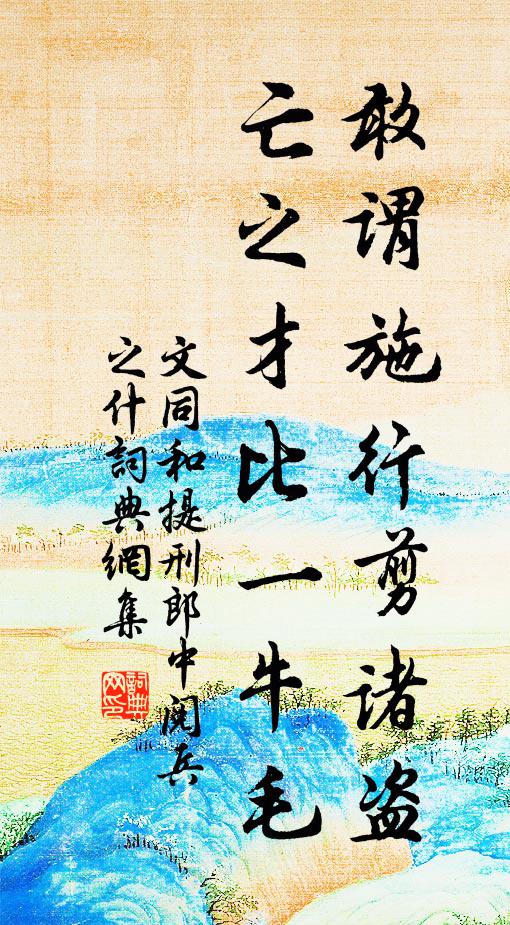 敢谓施行剪诸盗
亡之才比一牛毛
文同和提刑郎中阅兵
之什詞典網集
詞典网印